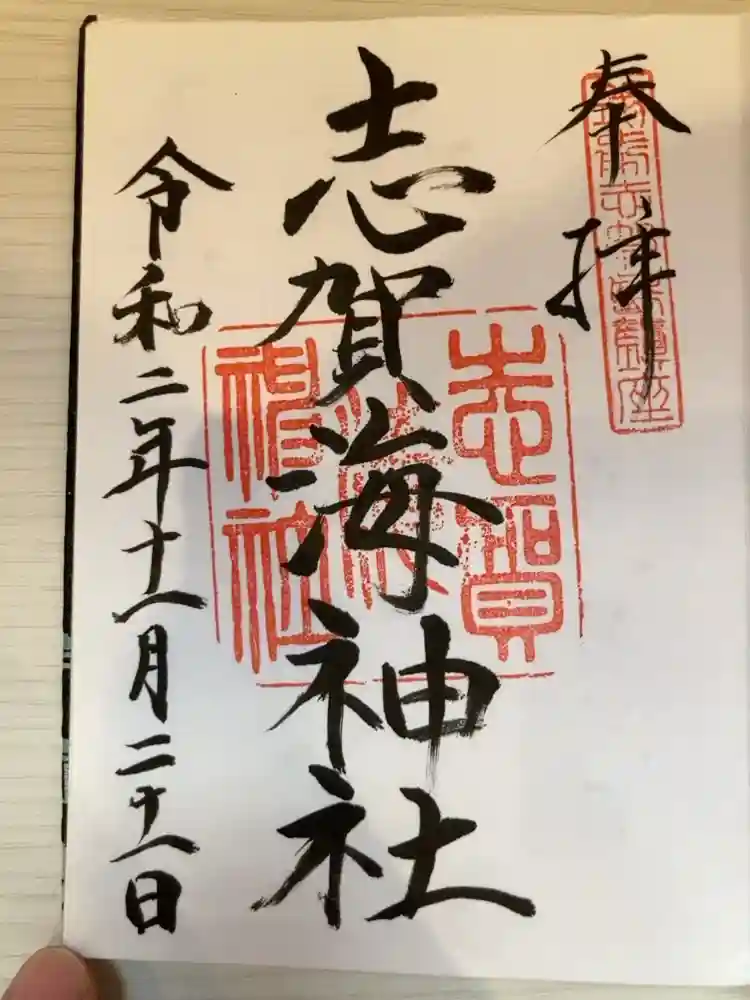 奉拝
志賀海神社
志賀海神社
令和二年十一月二十一日